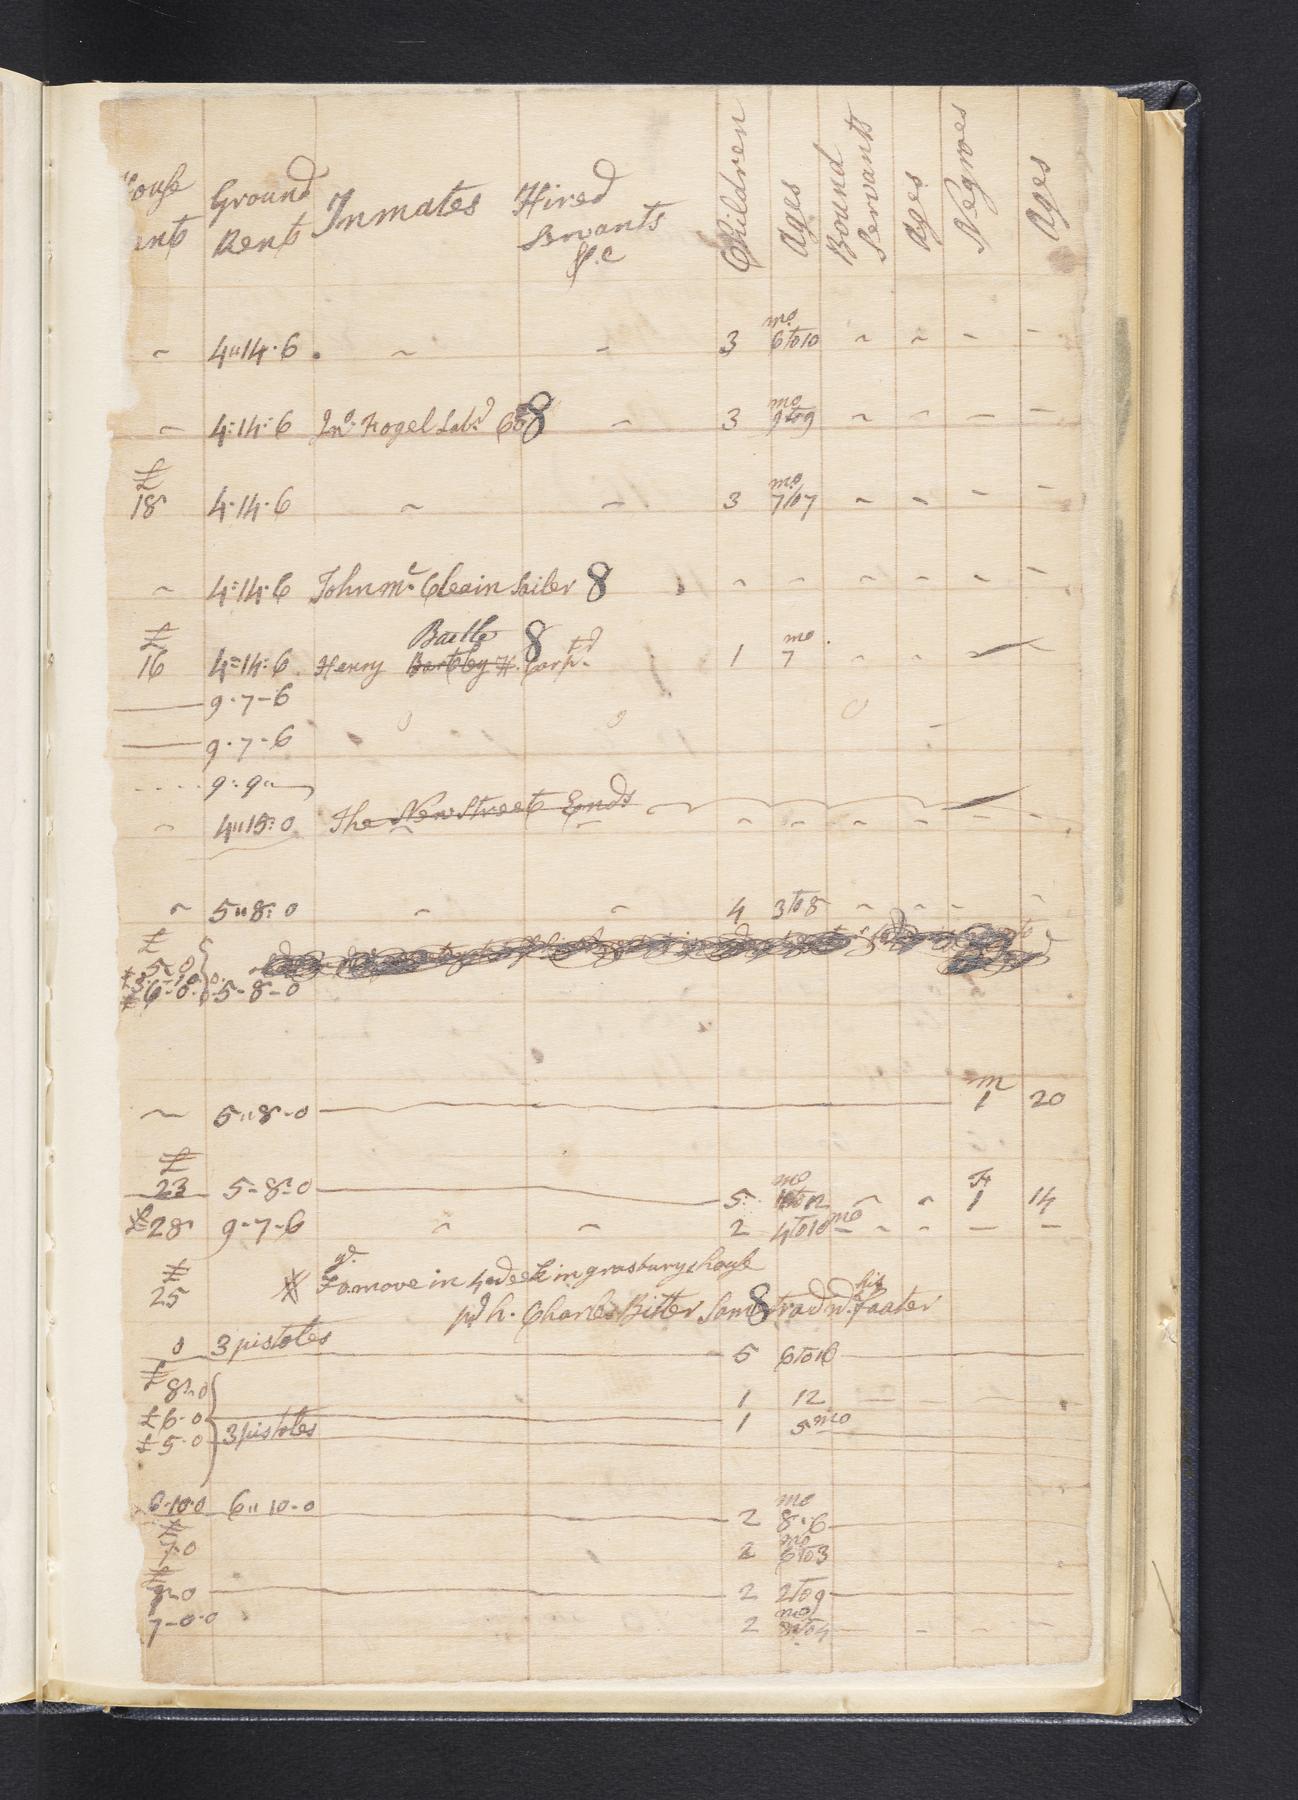 House Rent | Ground Rent | Inmates | Hired Servants &c | Children | Ages | Bound Servants | Ages | Negroes | Ages
~ 4"14.6 . ~ - 3 mo 6 to 10 ~ ~ - -
~ 4:14:6 Jno. Fogel Labr 8 ~ 3 mo 9 to 9 ~ - - -
£ 18 4.14.6 ~ ~ 3 mo 7 to 7 - - - -
~ 4:14.6 John Mc. Cleain Sailer 8 ~ ~ ~ ~ - -
£ 16 4=14:6 Henry Bartley H. Carpr. 8 1 mo 7 - - -
9.7-6
9.7-6
9:9"
~ 4"15:0 The New Street Ends ~ ~ ~ ~ - -
~ 5"8:0 ~ ~ 4 3 to 8 ~ ~ - ~
£ 5-0
£ 6-0 5-8-0
~ 5"8-0 m 1 20
£ 23 5-8-0 5 mo to 12 ~ ~ F 1 14
£28 9-7-6 ~ ~ 2 4 to 10 mo - - - -
£ 25 move in 4 week in house
Charles Bitter 8
0 3 pistoles 5 6 to 16
£ 8"-0 1 12
£6-0 1 5 mo
£5-0 3 pistoles
6-10-0 6"10-0 2 mo 8.6
£ 7-0 2 mo 6 to 3
£ 9-0 2 2 to 9
7-0-0 2 mo 8 to 4